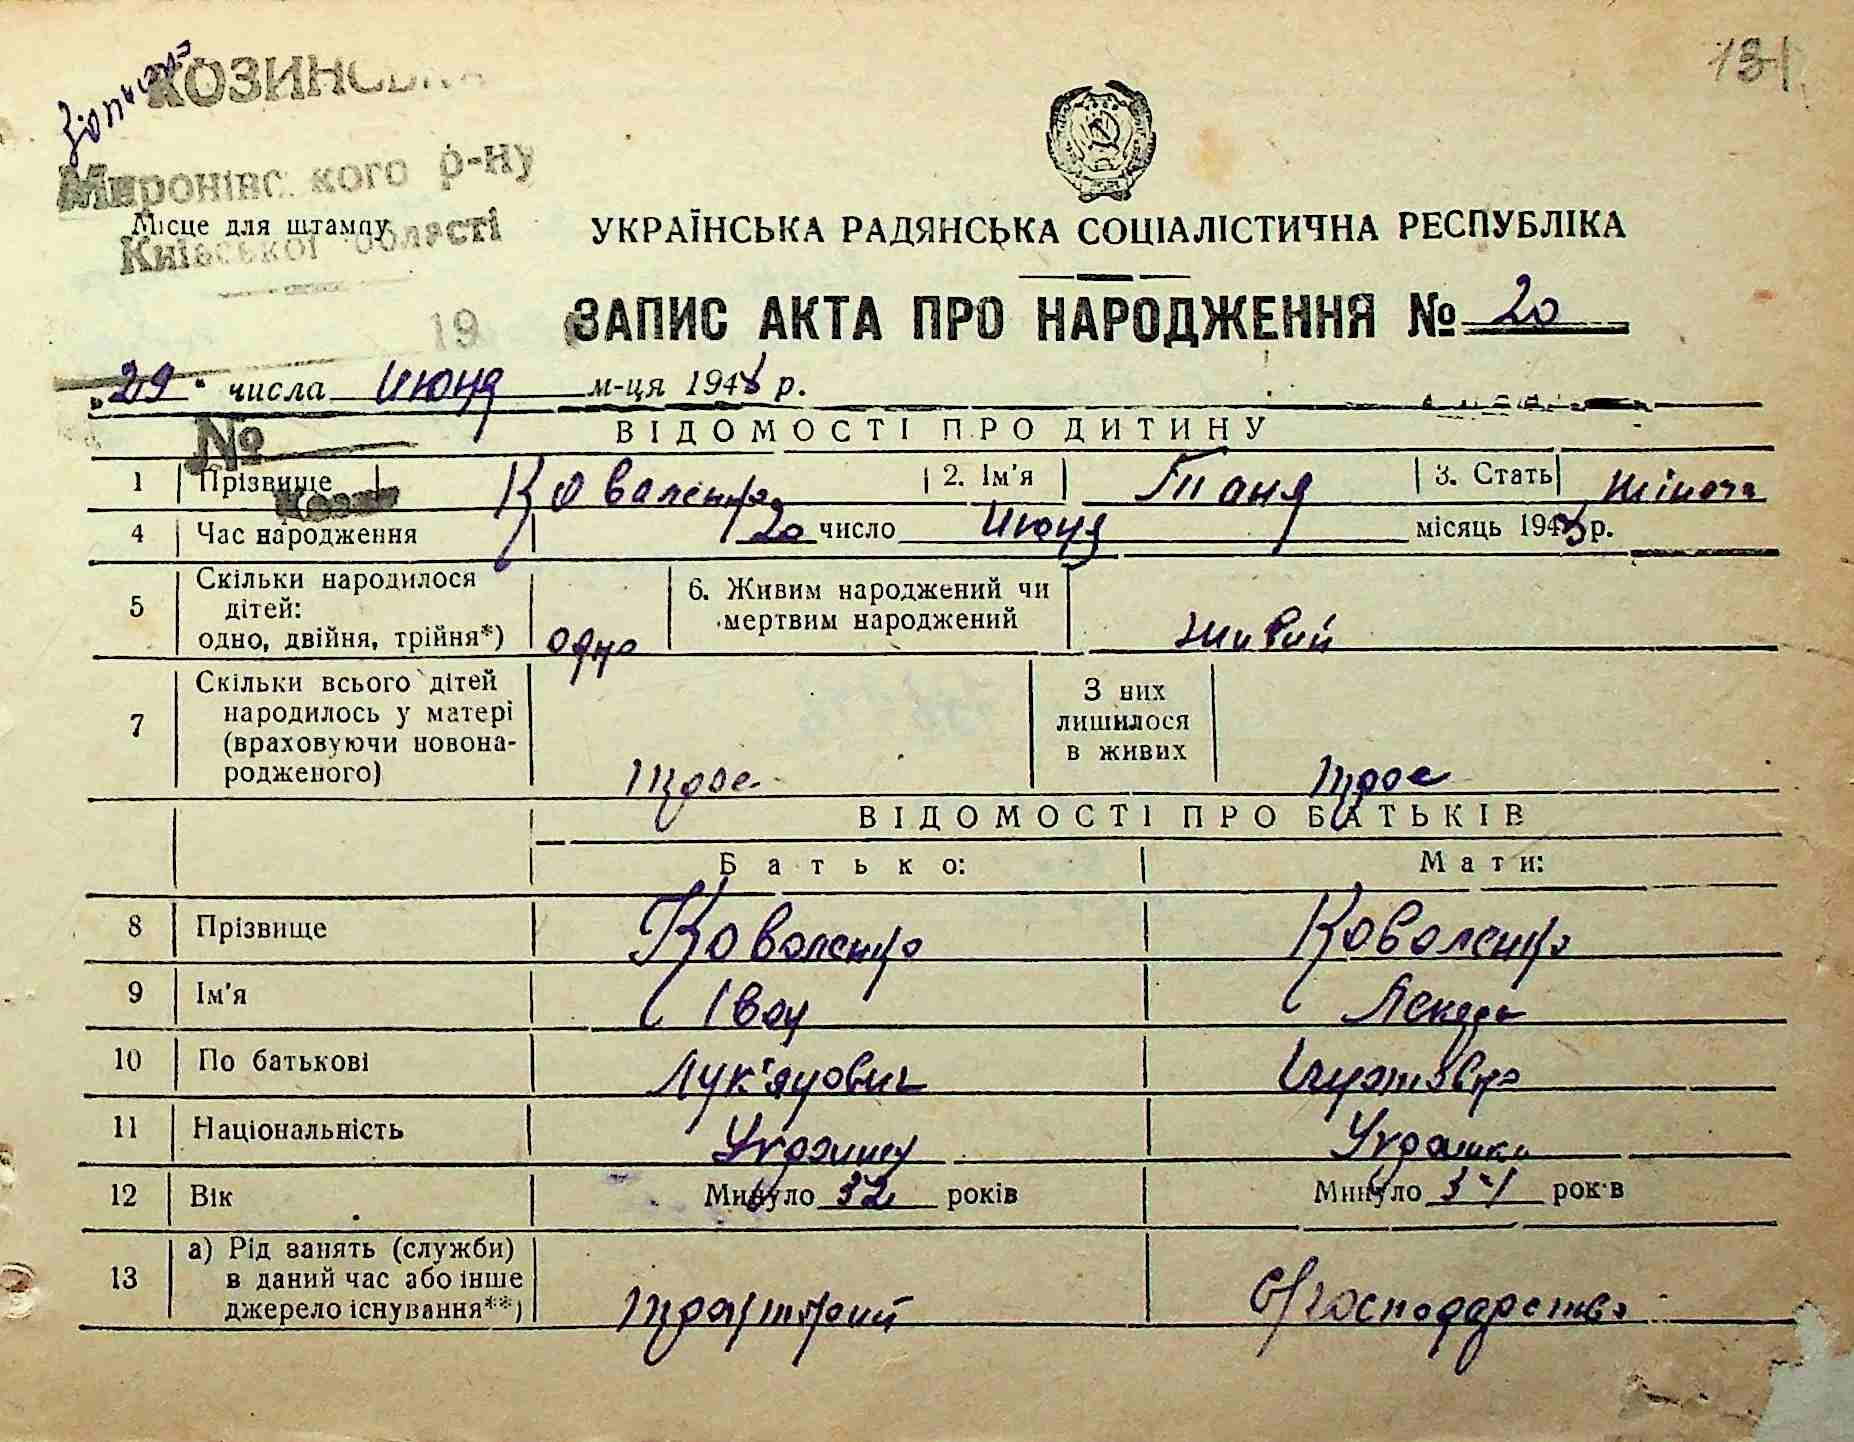 131
КОЗИНСЬКА
Миронівського р-ну
Місце для штампу
Київської області
19
УКРАЇНСЬКА РАДЯНСЬКА СОЦІАЛІСТИЧНА РЕСПУБЛІКА
ЗАПИС АКТА ПРО НАРОДЖЕННЯ № 20
„29“ числа июня м-ця 1948 р.
№
ВІДОМОСТІ ПРО ДИТИНУ
1 Прізвище Коваленко 2. Ім'я Таня 3. Стать жіноча
4 Час народження 20 число июня місяць 1948 р.
5 Скільки народилося дітей: одно, двійня, трійня*) одно 6. Живим народжений чи мертвим народжений живий
7 Скільки всього дітей народилось у матері (враховуючи новонародженого) троє З них лишилося в живих троє
ВІДОМОСТІ ПРО БАТЬКІВ
Батько: Мати:
8 Прізвище Коваленко Коваленко
9 Ім'я Іван
10 По батькові Лук'янович
11 Національність Украинец Украинка
12 Вік Минуло 32 років Минуло 31 років
13 а) Рід занять (служби) в даний час або інше джерело існування**) С/господарство